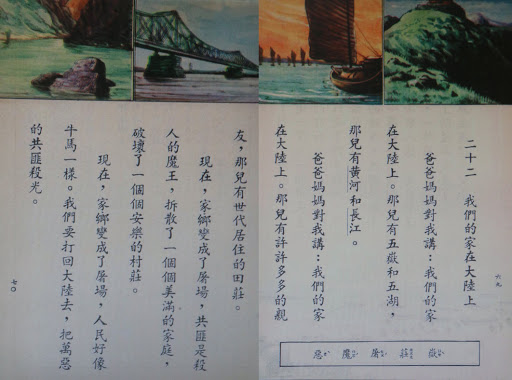 六九
二十二　我們的家在大陸上
爸爸媽媽對我講：我們的家
在大陸上。那兒有五嶽和五湖，
那兒有黃河和長江。
爸爸媽媽對我講：我們的家
在大陸上。那兒有許許多多的親
嶽 莊 屠 魔 惡
友，那兒有世代居住的田莊。
現在，家鄉變成了屠場，共匪是殺
人的魔王，拆散了一個個美滿的家庭，
破壞了一個個安樂的村莊。
現在，家鄉變成了屠場，人民好像
牛馬一樣。我們要打回大陸去，把萬惡
的共匪殺光。
七〇